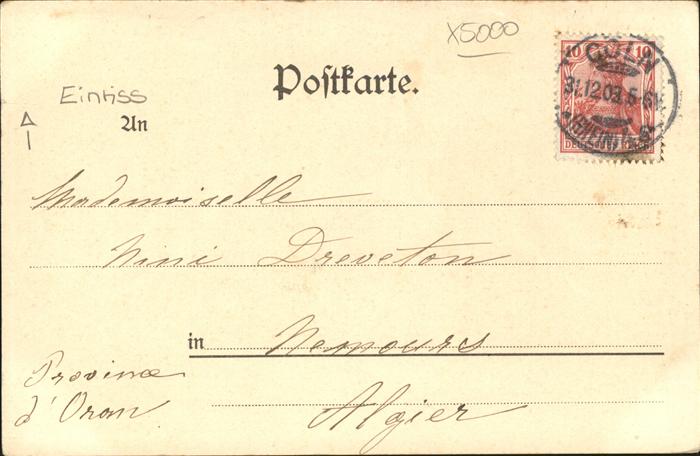 X5000
Postkarte.
Einriss
An
10 10
CÖLN
31.12.03. 5-6N.
(RHEIN)
DEUTSCHES REICH
Mademoiselle
Nini Dreveton
in Nemours
Province
d'Oran Algier